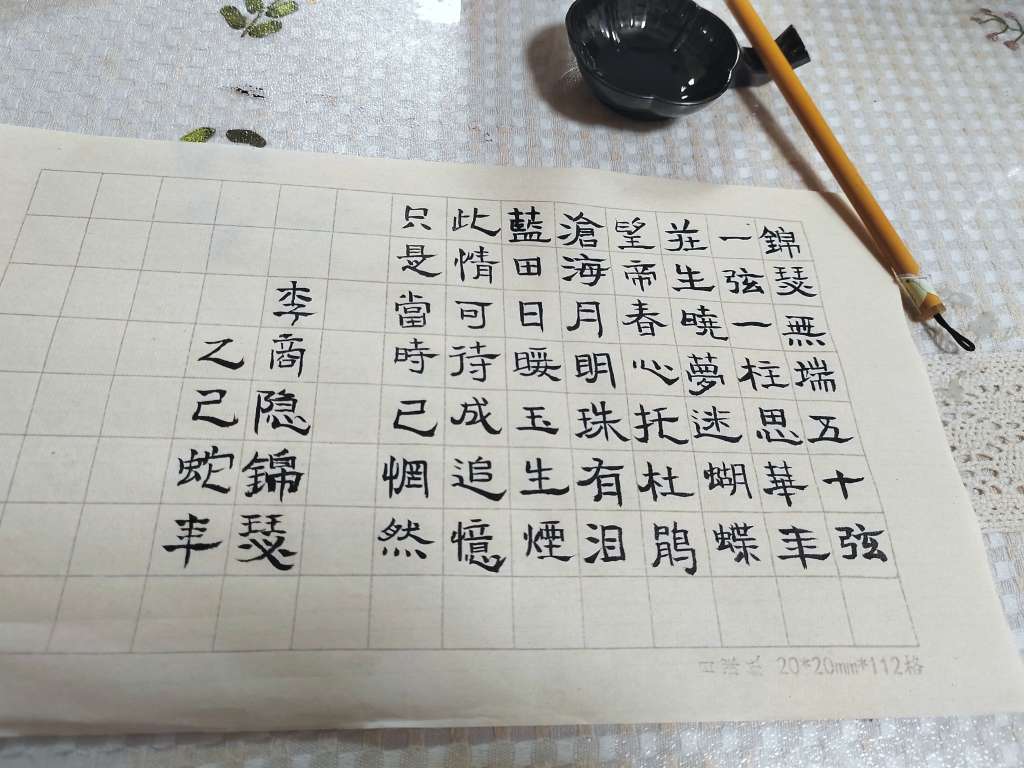 錦瑟無端五十弦
一弦一柱思華年
莊生曉夢迷蝴蝶
望帝春心托杜鵑
滄海月明珠有泪
藍田日暖玉生煙
此情可待成追憶
只是當時已惘然
李商隐錦瑟
乙巳蛇年
20*20mm*112格